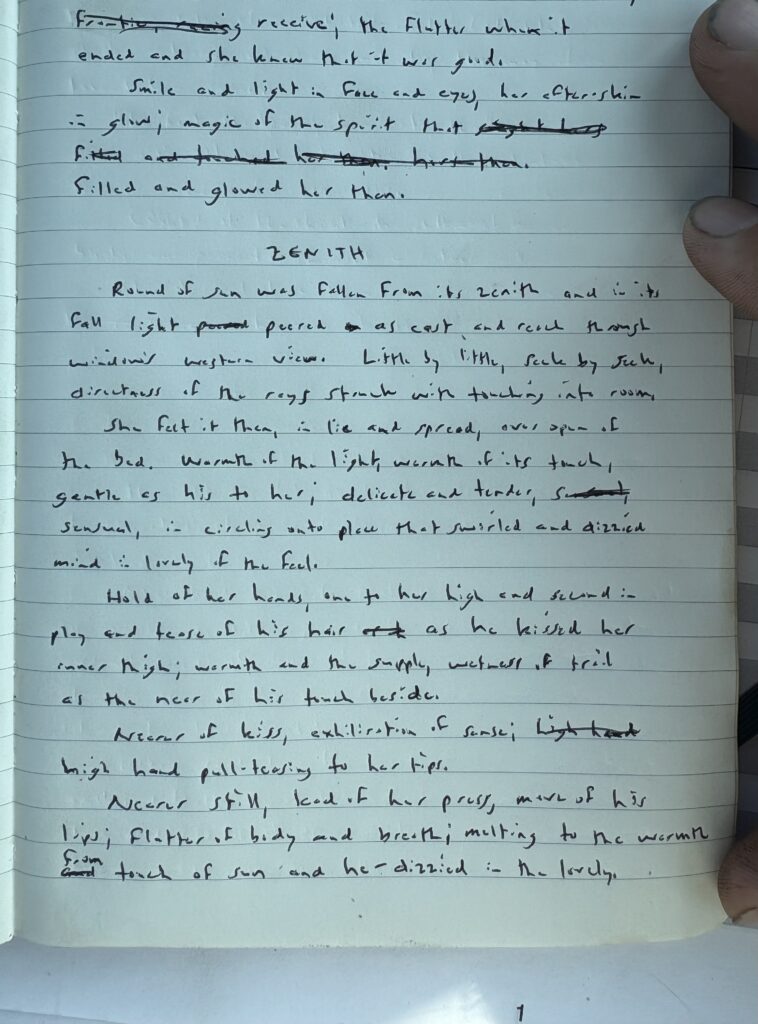 receive; the flutter where it
ended and she knew that it was good.
Smile and light in face and eyes, her after-skin
in glow; magic of the spirit that
filled and glowed her then.
ZENITH
Round of sun was fallen from its zenith and in its
fall light peered as cast and reach through
window's western view. Little by little, seek by seek,
directness of the rays struck with touching into room,
She felt it then, in lie and spread, over open of
the bed. Warmth of the light, warmth of its touch,
gentle as his to her; delicate and tender,
sensual, in circling onto place that swirled and dizzied
mind in lovely of the feel.
Hold of her hands, one to her high and second in
play and tease of his hair as he kissed her
inner thigh; warmth and the supple, wetness of trail
as the near of his touch beside.
Nearer of kiss, exhiliration of sense;
high hand pull-teasing to her tips.
Nearer still, lead of her press, more of his
lips; flutter of body and breath; melting to the warmth
from touch of sun and he-dizzied in the lovely.